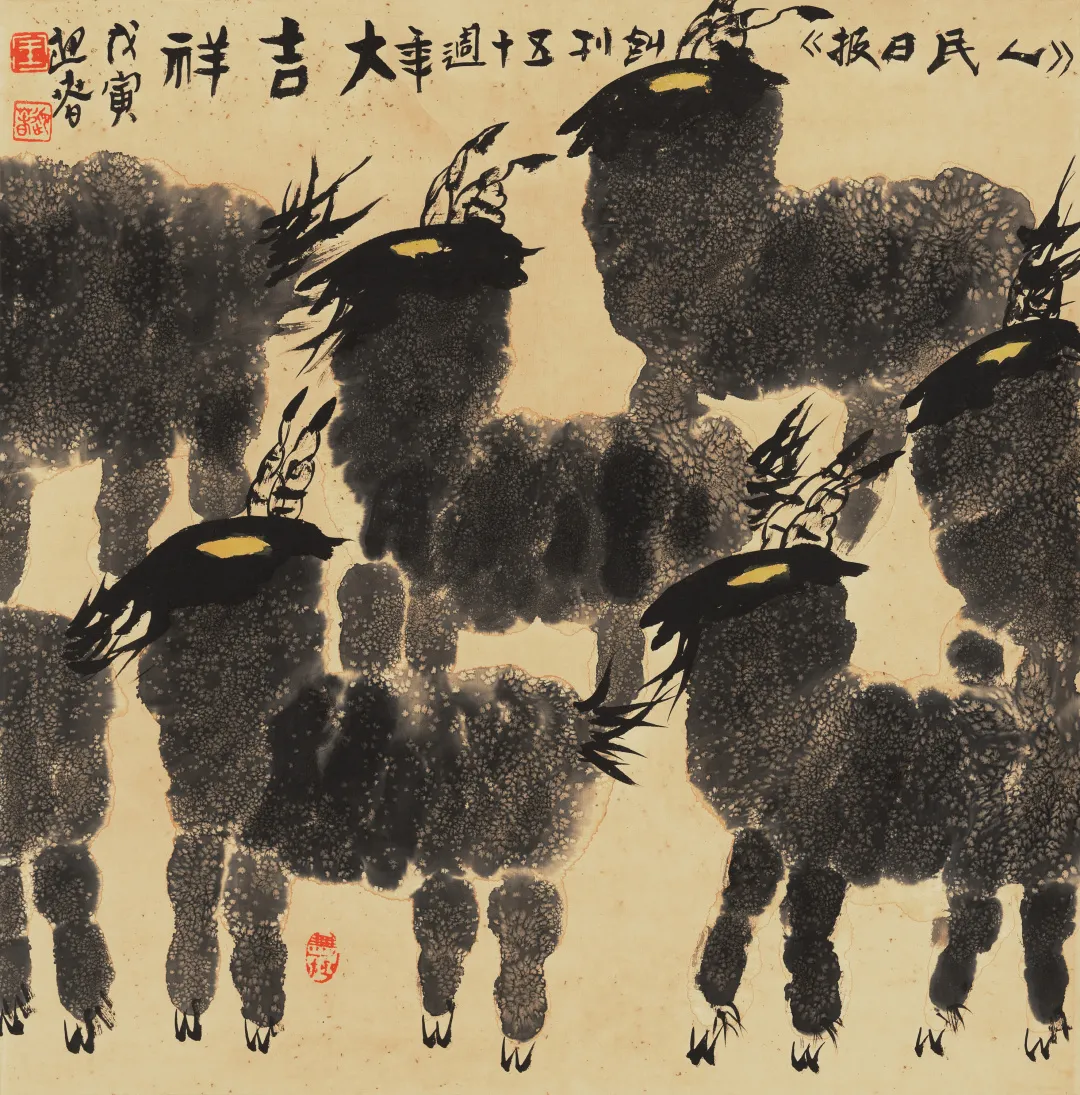 《人民日报》创刊五十週年大吉祥
戊寅
迎春
王
迎春